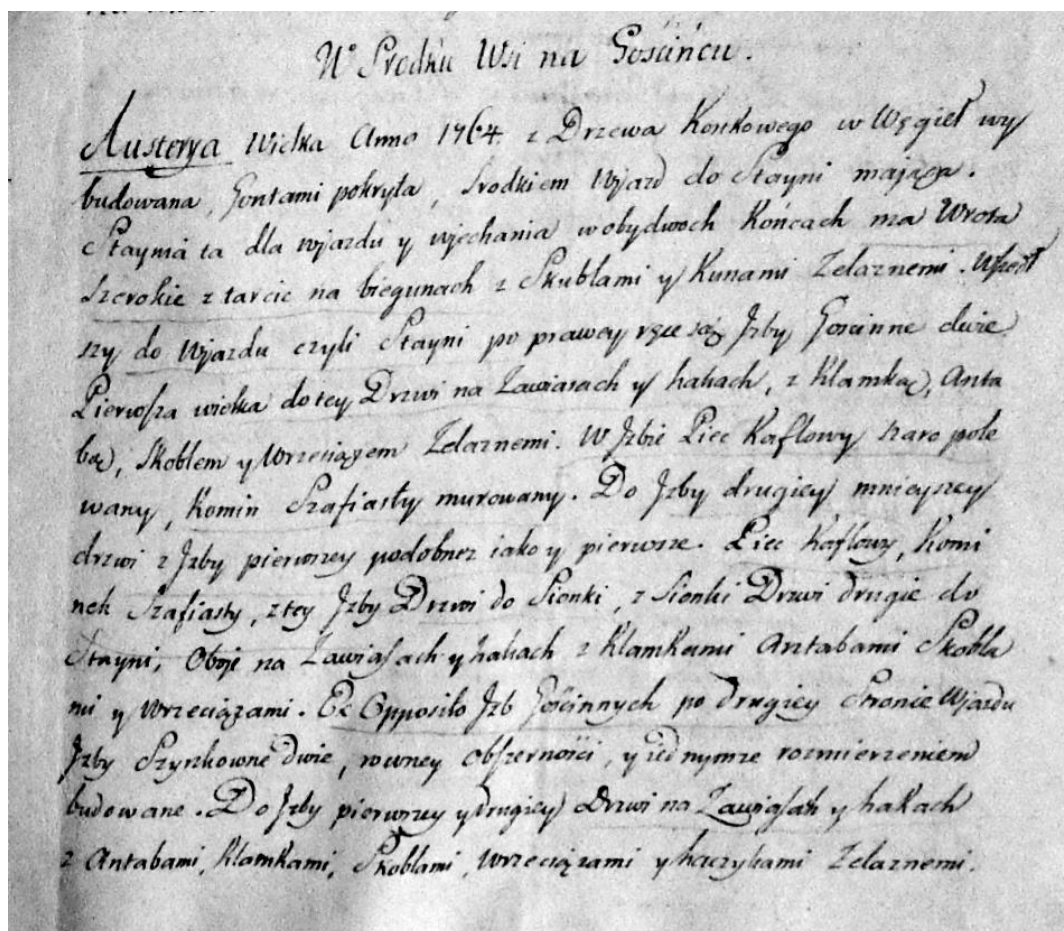 W Srodku Wsi na Gościńcu.
Austerya Wielka Anno 1764. z Drzewa Kostkowego w Węgieł wy
budowana, Gontami pokryta, Srodkiem Wjazd do Stayni maiąca.
Staynia ta dla wjazdu y wjechania w obydwoch Końcach ma Wrota
szerokie z tarcic na biegunach z Skublami y Kunami Zelaznemi. Wszedł
szy do Wjazdu czyli Stayni po prawey ręce są Jzby Goscinne dwie
Pierwsza wielka do tey Drzwi na Zawiasach y hakach, z Klamką, Anta
bą, Skoblem y Wrzeciązem Zelaznemi. W Jzbie Piec Kaflowy szaro pole
wany, Komin Szafiasty murowany. Do Jzby drugiey mnieyszey
drzwi z Jzby pierwszey podobnez iako y pierwsze. Piec Kaflowy, Komi
nek Szafiasty, z tey Jzby Drzwi do Sionki, z Sionki Drzwi drugie do
Stayni, Oboie na Zawiasach y hakach z Klamkami Antabami Skobla
mi y Wrzeciązami. Ex Opposito Jzb Gościnnych po drugiey Stronie Wjazdu
Jzby Szynkowne dwie, rowney Obszerności, y iednymze rozmierzeniem
budowane. Do Jzby pierwszey y drugiey Drzwi na Zawiasach y hakach
z Antabami, Klamkami, Skoblami, Wrzeciązami y haczykami Zelaznemi.